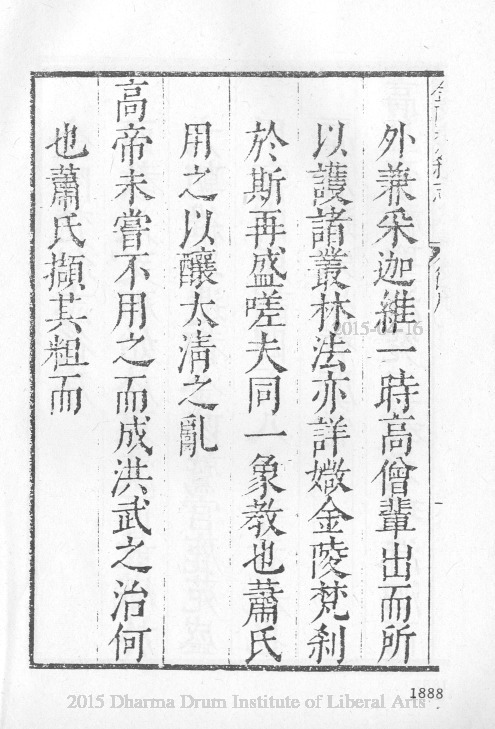 外兼采迦維一時高僧輩出而所
以護諸叢林法亦詳媺金陵梵刹
於斯再盛嗟夫同一象教也蕭氏
用之以釀太清之亂
高帝未嘗不用之而成洪武之治何
也蕭氏擷其粗而
2015-04-16
1888
2015 Dharma Drum Institute of Liberal Arts